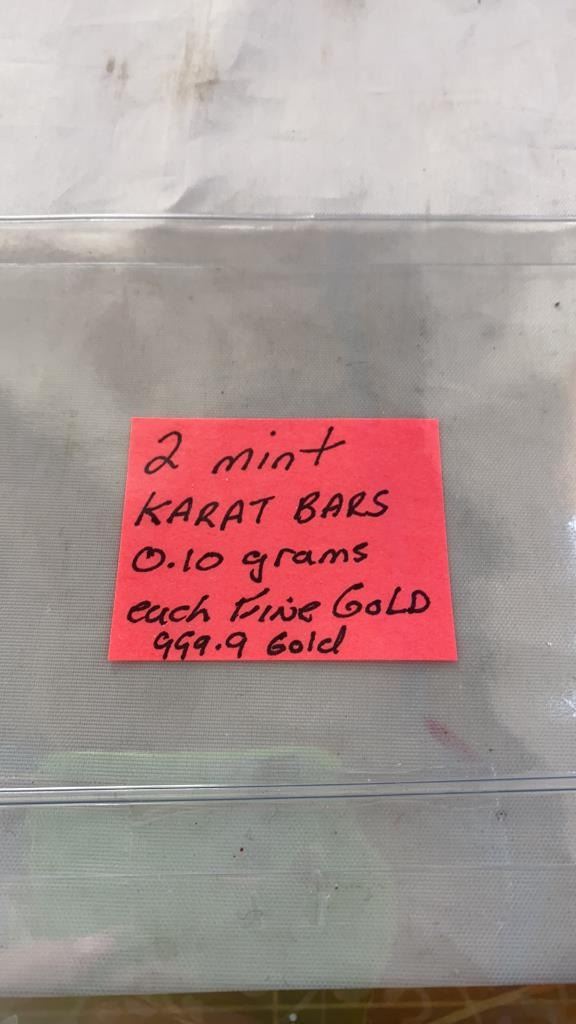 2 mint
KARAT BARS
0.10 grams
each Fine GoLD
999.9 Gold